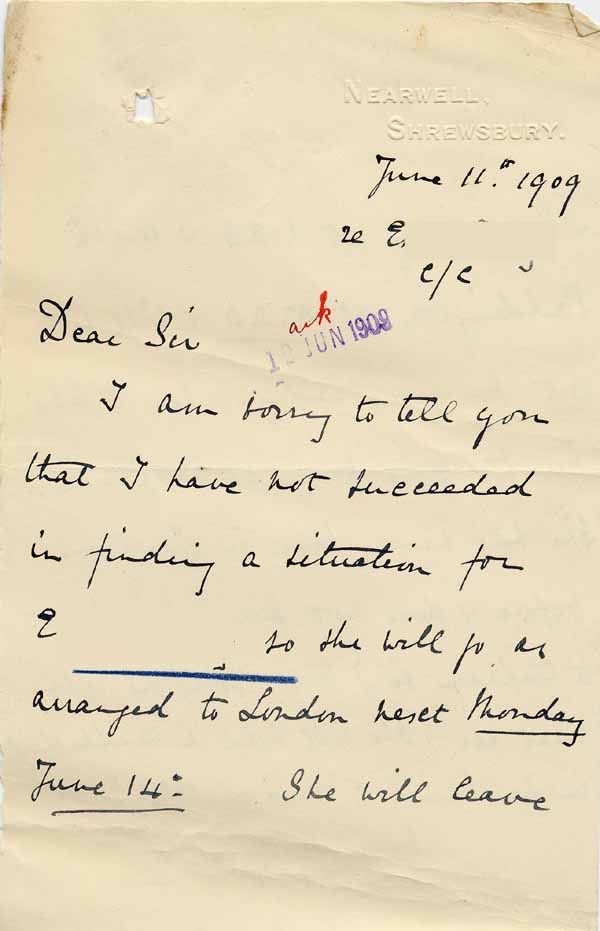 NEARWELL,
SHREWSBURY.
June 11th 1909
re E.
c/c
Dear Sir
ack
12 JUN 1909
I am sorry to tell you
that I have not succeeded
in finding a situation for
E so she will go as
arranged to London next Monday
June 14th She will leave